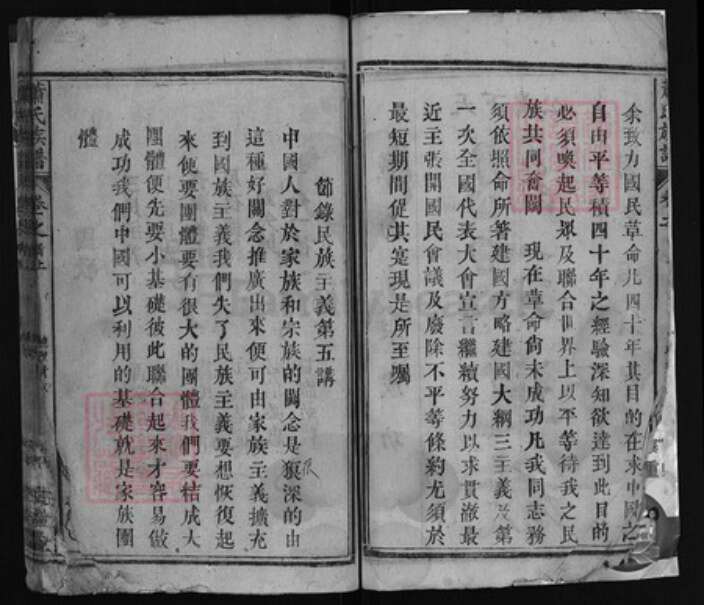 余致力國民革命凡四十年其目的在求中國之
自由平等積四十年之經驗深知欲達到此目的
必須喚起民眾及聯合世界上以平等待我之民
族共同奮鬬　現在革命尚未成功凡我同志務
須依照命所著建國方略建國大綱三主義及第
一次全國代表大會宣言繼續努力以求貫澈最
近主張開國民會議及廢除不平等條約尤須於
最短期間促其寔現是所至囑
節錄民族主義第五講
中國人對於家族和宗族的關念是狠深的由
很
這種好關念推廣出來便可由家族主義擴充
到國族主義我們失了民族主義要想恢復起
來便要團體要有很大的團體我們要結成大
團體便先要小基礎彼此聯合起來才容易做
成功我們中國可以利用的基礎就是家族團
體
氏族譜
卷之